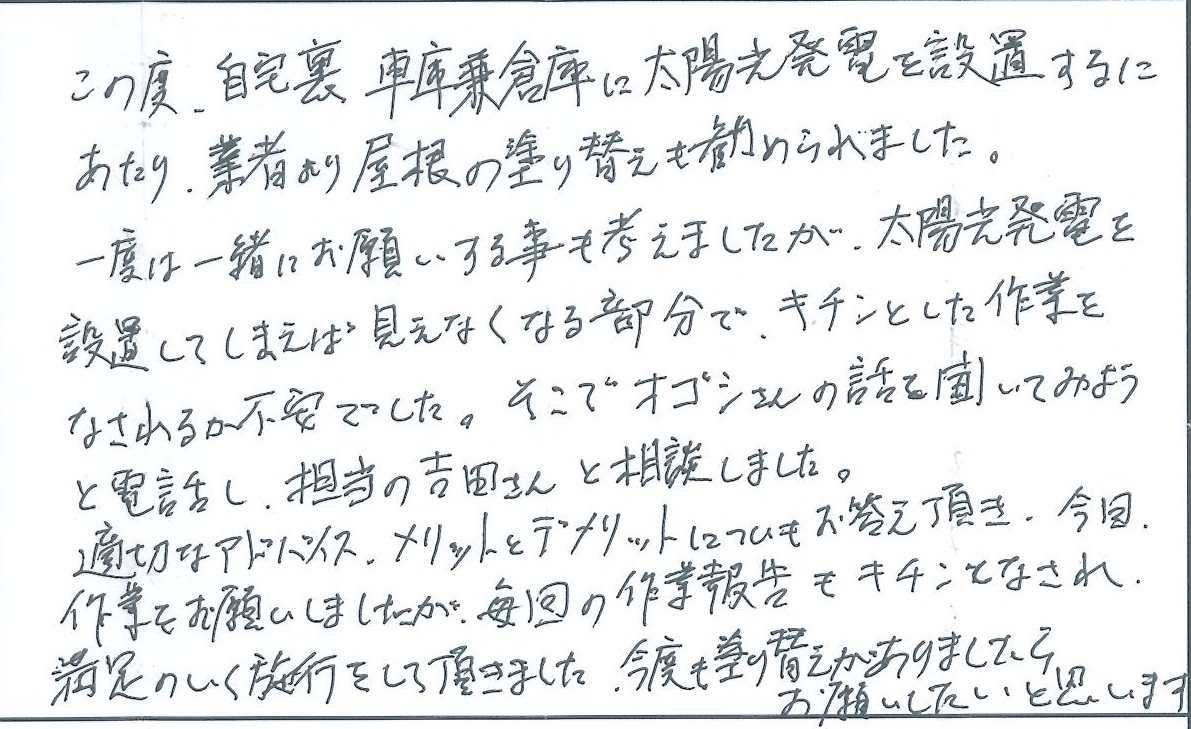 この度、自宅裏、車庫兼倉庫に太陽光発電を設置するに
あたり、業者より屋根の塗り替えも勧められました。
一度は一緒にお願いする事も考えましたが、太陽光発電を
設置してしまえば見えなくなる部分で、キチンとした作業を
なされるか不安でした。そこでオゴシさんの話を聞いてみよう
と電話し、担当の吉田さんと相談しました。
適切なアドバイス、メリットとデメリットについもお答え頂き、今回、
作業をお願いしましたが、毎回の作業報告もキチンとなされ、
満足のいく施行をして頂きました、今度も塗り替えがありましたら
お願いしたいと思います